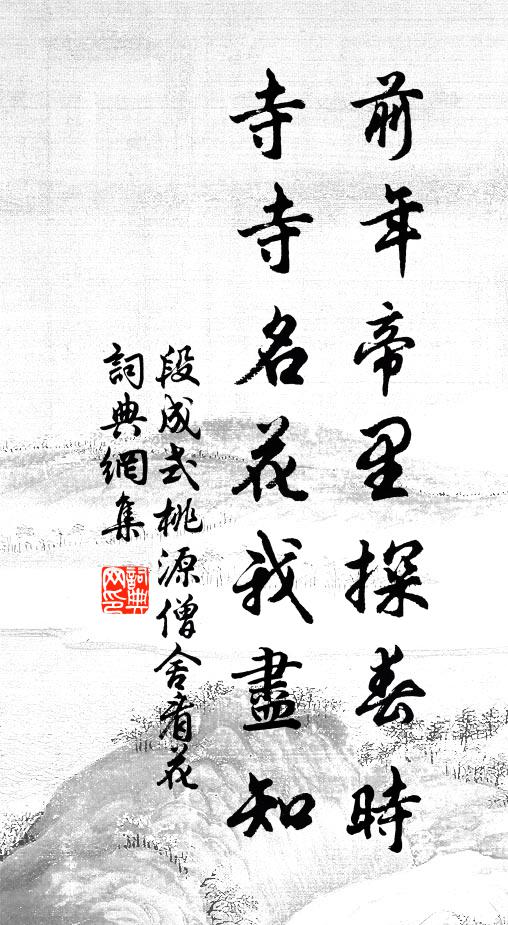 前年帝里探春時
寺寺名花我盡知
段成式桃源僧舍看花
詞典網集
詞典网印